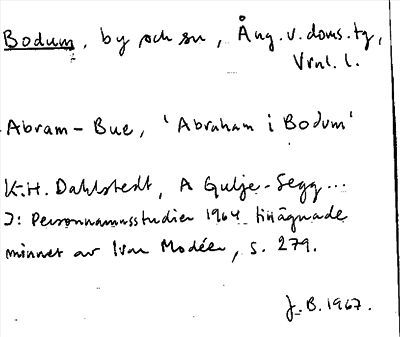 Bodum, by och sn, Ång. v. doms.tg,
Vrnl. l.
Abram-Bue, 'Abraham i Bodum'
K.-H. Dahlstedt, A Gulje-Segg...
I: Personnamnsstudier 1964 tillägnade
minnet av Ivar Modéer, s. 279.
J.B. 1967.